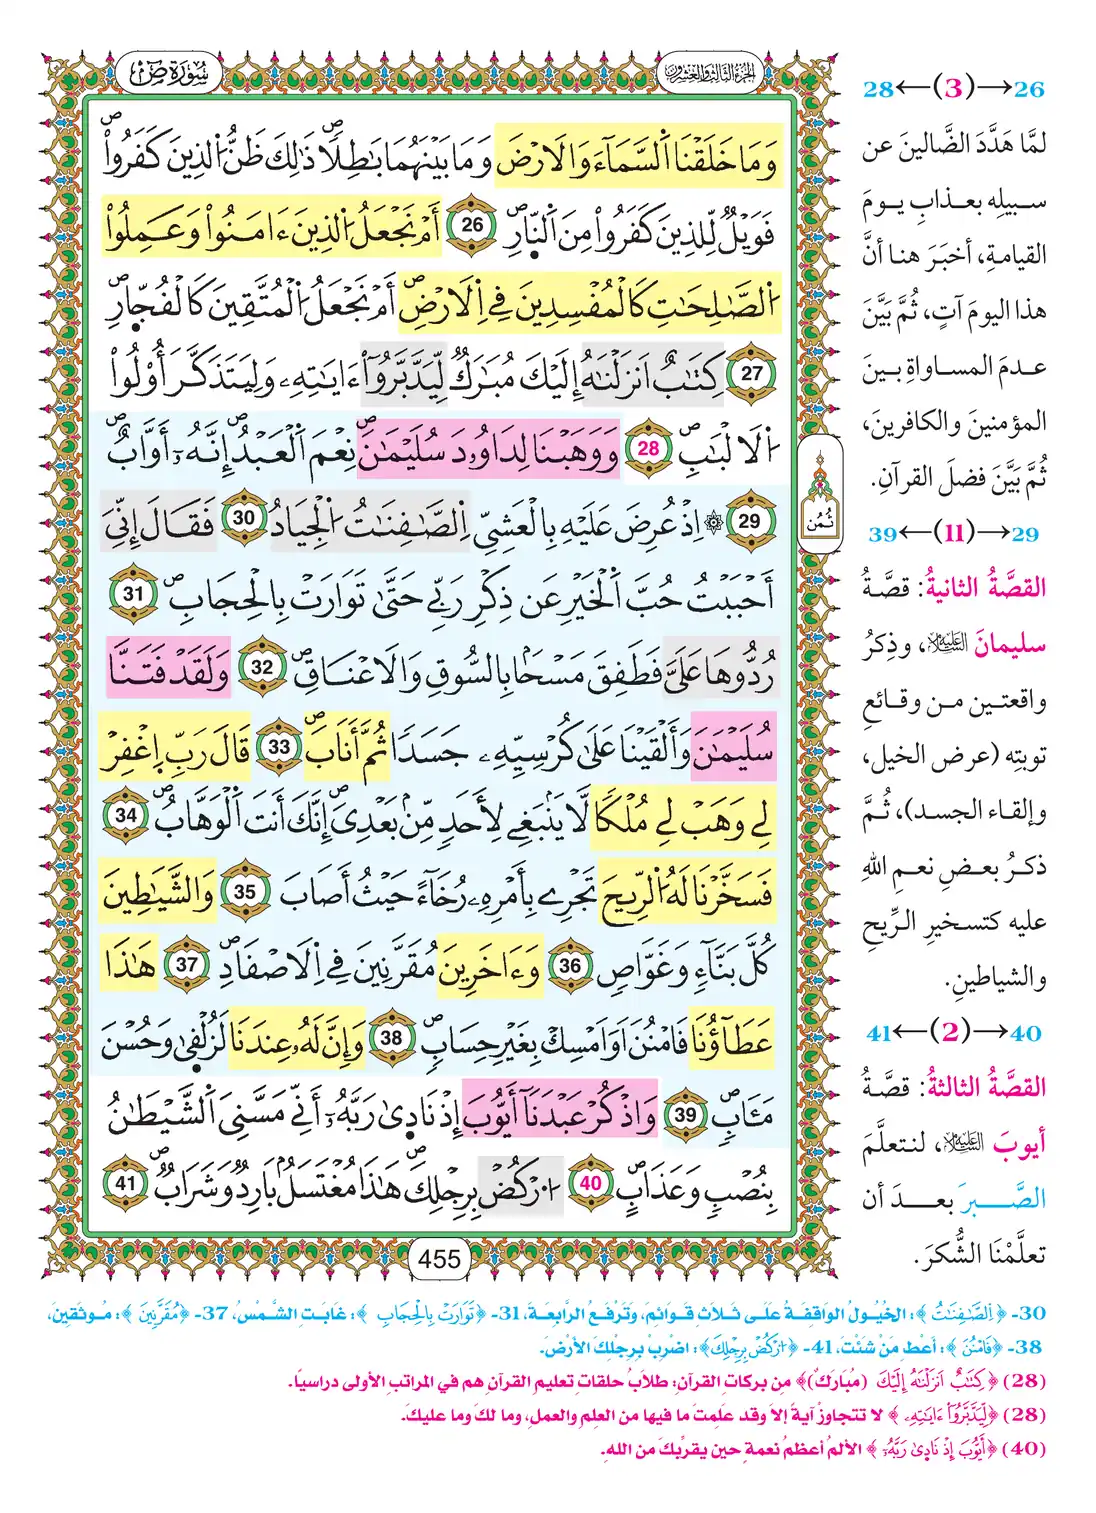 سُورَةُ صٓ
الجزء الثالث والعشرون
وَمَا خَلَقْنَا اَ۬لسَّمَآءَ وَالَارْضَ وَمَا بَيْنَهُمَا بَٰطِلاٗۖ ذَٰلِكَ ظَنُّ اُ۬لذِينَ كَفَرُواْۖ
فَوَيْلٞ لِّلذِينَ كَفَرُواْ مِنَ اَ۬لنّ۪ارِۖ 26 أَمْ نَجْعَلُ اُ۬لذِينَ ءَامَنُواْ وَعَمِلُواْ
اُ۬لصَّٰلِحَٰتِ كَالْمُفْسِدِينَ فِے اِ۬لَارْضِۖ أَمْ نَجْعَلُ اُ۬لْمُتَّقِينَ كَالْفُجّ۪ارِۖ
27 كِتَٰبٌ اَنزَلْنَٰهُ إِلَيْكَ مُبَٰرَكٞ لِّيَدَّبَّرُوٓاْ ءَايَٰتِهِۦ وَلِيَتَذَكَّرَ أُوْلُواْ
اُ۬لَالْبَٰبِۖ 28 وَوَهَبْنَا لِدَاوُۥدَ سُلَيْمَٰنَۖ نِعْمَ اَ۬لْعَبْدُۖ إِنَّهُۥٓ أَوَّابٌۖ
29 ۞ اِذْ عُرِضَ عَلَيْهِ بِالْعَشِيِّ اِ۬لصَّٰفِنَٰتُ اُ۬لْجِيَادُ 30 فَقَالَ إِنِّيَ
أَحْبَبْتُ حُبَّ اَ۬لْخَيْرِ عَن ذِكْرِ رَبِّے حَتَّىٰ تَوَارَتْ بِالْحِجَابِۖ 31
رُدُّوهَا عَلَيَّ فَطَفِقَ مَسْحاَۢ بِالسُّوقِ وَالَاعْنَاقِۖ 32 وَلَقَدْ فَتَنَّا
سُلَيْمَٰنَ وَأَلْقَيْنَا عَلَىٰ كُرْسِيِّهِۦ جَسَداٗ ثُمَّ أَنَابَۖ 33 قَالَ رَبِّ اِ۪غْفِرْ
لِے وَهَبْ لِے مُلْكاٗ لَّا يَنۢبَغِے لِأَحَدٖ مِّنۢ بَعْدِيَۖ إِنَّكَ أَنتَ اَ۬لْوَهَّابُۖ 34
فَسَخَّرْنَا لَهُ اُ۬لرِّيحَ تَجْرِے بِأَمْرِهِۦ رُخَآءً حَيْثُ أَصَابَ 35 وَالشَّيَٰطِينَ
كُلَّ بَنَّآءٖ وَغَوَّاصٖ 36 وَءَاخَرِينَ مُقَرَّنِينَ فِے اِ۬لَاصْفَادِۖ 37 هَٰذَا
عَطَآؤُنَا فَامْنُنَ اَوَ اَمْسِكْ بِغَيْرِ حِسَابٖۖ 38 وَإِنَّ لَهُۥ عِندَنَا لَزُلْف۪ىٰ وَحُسْنَ
مَـَٔابٖۖ 39 وَاذْكُرْ عَبْدَنَآ أَيُّوبَ إِذْ نَاد۪ىٰ رَبَّهُۥٓ أَنِّے مَسَّنِيَ اَ۬لشَّيْطَٰنُ
بِنُصْبٖ وَعَذَابٍۖ 40 اُ۟رْكُضْ بِرِجْلِكَۖ هَٰذَا مُغْتَسَلُۢ بَارِدٞ وَشَرَابٞۖ 41
ثُمُن
455
26→(3)←28
لمَّا هَدَّدَ الضَّالينَ عن
سبيلِه بعذابِ يومَ
القيامةِ، أخبَرَ هنا أنَّ
هذا اليومَ آتٍ، ثُمَّ بيَّنَ
عدمَ المساواةِ بينَ
المؤمنينَ والكافرينَ،
ثُمَّ بيَّنَ فضلَ القرآنِ.
29→(11)←39
القصَّةُ الثانيةُ: قصَّةُ
سليمانَ عليه السلام، وذِكرُ
واقعتين من وقائعِ
توبتِه (عرض الخيل،
وإلقاء الجسد)، ثُمَّ
ذكرُ بعضِ نعمِ اللهِ
عليه كتسخيرِ الرِّيحِ
والشياطينِ.
40→(2)←41
القصَّةُ الثالثةُ: قصَّةُ
أيوبَ عليه السلام، لنتعلَّمَ
الصَّبرَ بعدَ أن
تعلَّمْنَا الشُّكرَ.
30- ﴿اِ۬لصَّٰفِنَٰتُ﴾: الخُيُولُ الوَاقِفَةُ عَلَى ثَلاثِ قَوَائِمَ، وَتَرْفَعُ الرَّابِعَةَ، 31- ﴿تَوَارَتْ بِالْحِجَابِ﴾: غَابَتِ الشَّمْسُ، 37- ﴿مُقَرَّنِينَ﴾: مُوثَقِينَ،
38- ﴿فَامْنُنَ﴾: أَعْطِ مَنْ شَئْتَ، 41- ﴿اُ۟رْكُضْ بِرِجْلِكَ﴾: اضْرِبْ بِرِجْلِكَ الأَرْضَ.
(28) ﴿كِتَٰبٌ اَنزَلْنَٰهُ إِلَيْكَ (مُبَارَكٌ)﴾ من بركاتِ القرآنِ: طلابُ حلقاتِ تعليمِ القرآنِ هم في المراتبِ الأولى دراسيًا.
(28) ﴿لِّيَدَّبَّرُوٓاْ ءَايَٰتِهِۦ﴾ لا تتجاوزْ آيةً إلا وقد علِمتَ ما فيها من العلمِ والعملِ، وما لكَ وما عليكَ.
(40) ﴿أَيُّوبَ إِذْ نَاد۪ىٰ رَبَّهُۥٓ﴾ الألمُ أعظمُ نعمةٍ حين يقرِّبكَ من اللهِ.